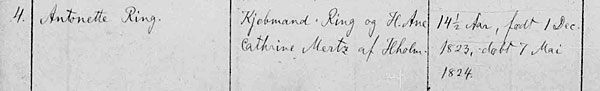 4. Antonette Ring. Kjobmand Ring og H. Ane 14½ Aar, født 1 Dec.
Cathrine Mertz af Hholm. 1823, døbt 7 Mai
1824.